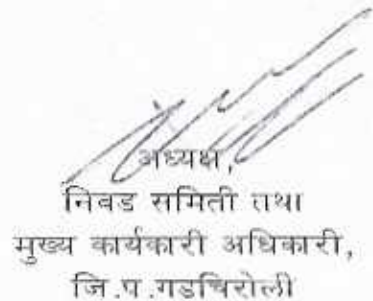 अध्यक्ष,
निवड समिती तथा
मुख्य कार्यकारी अधिकारी,
जि.प.गडचिरोली